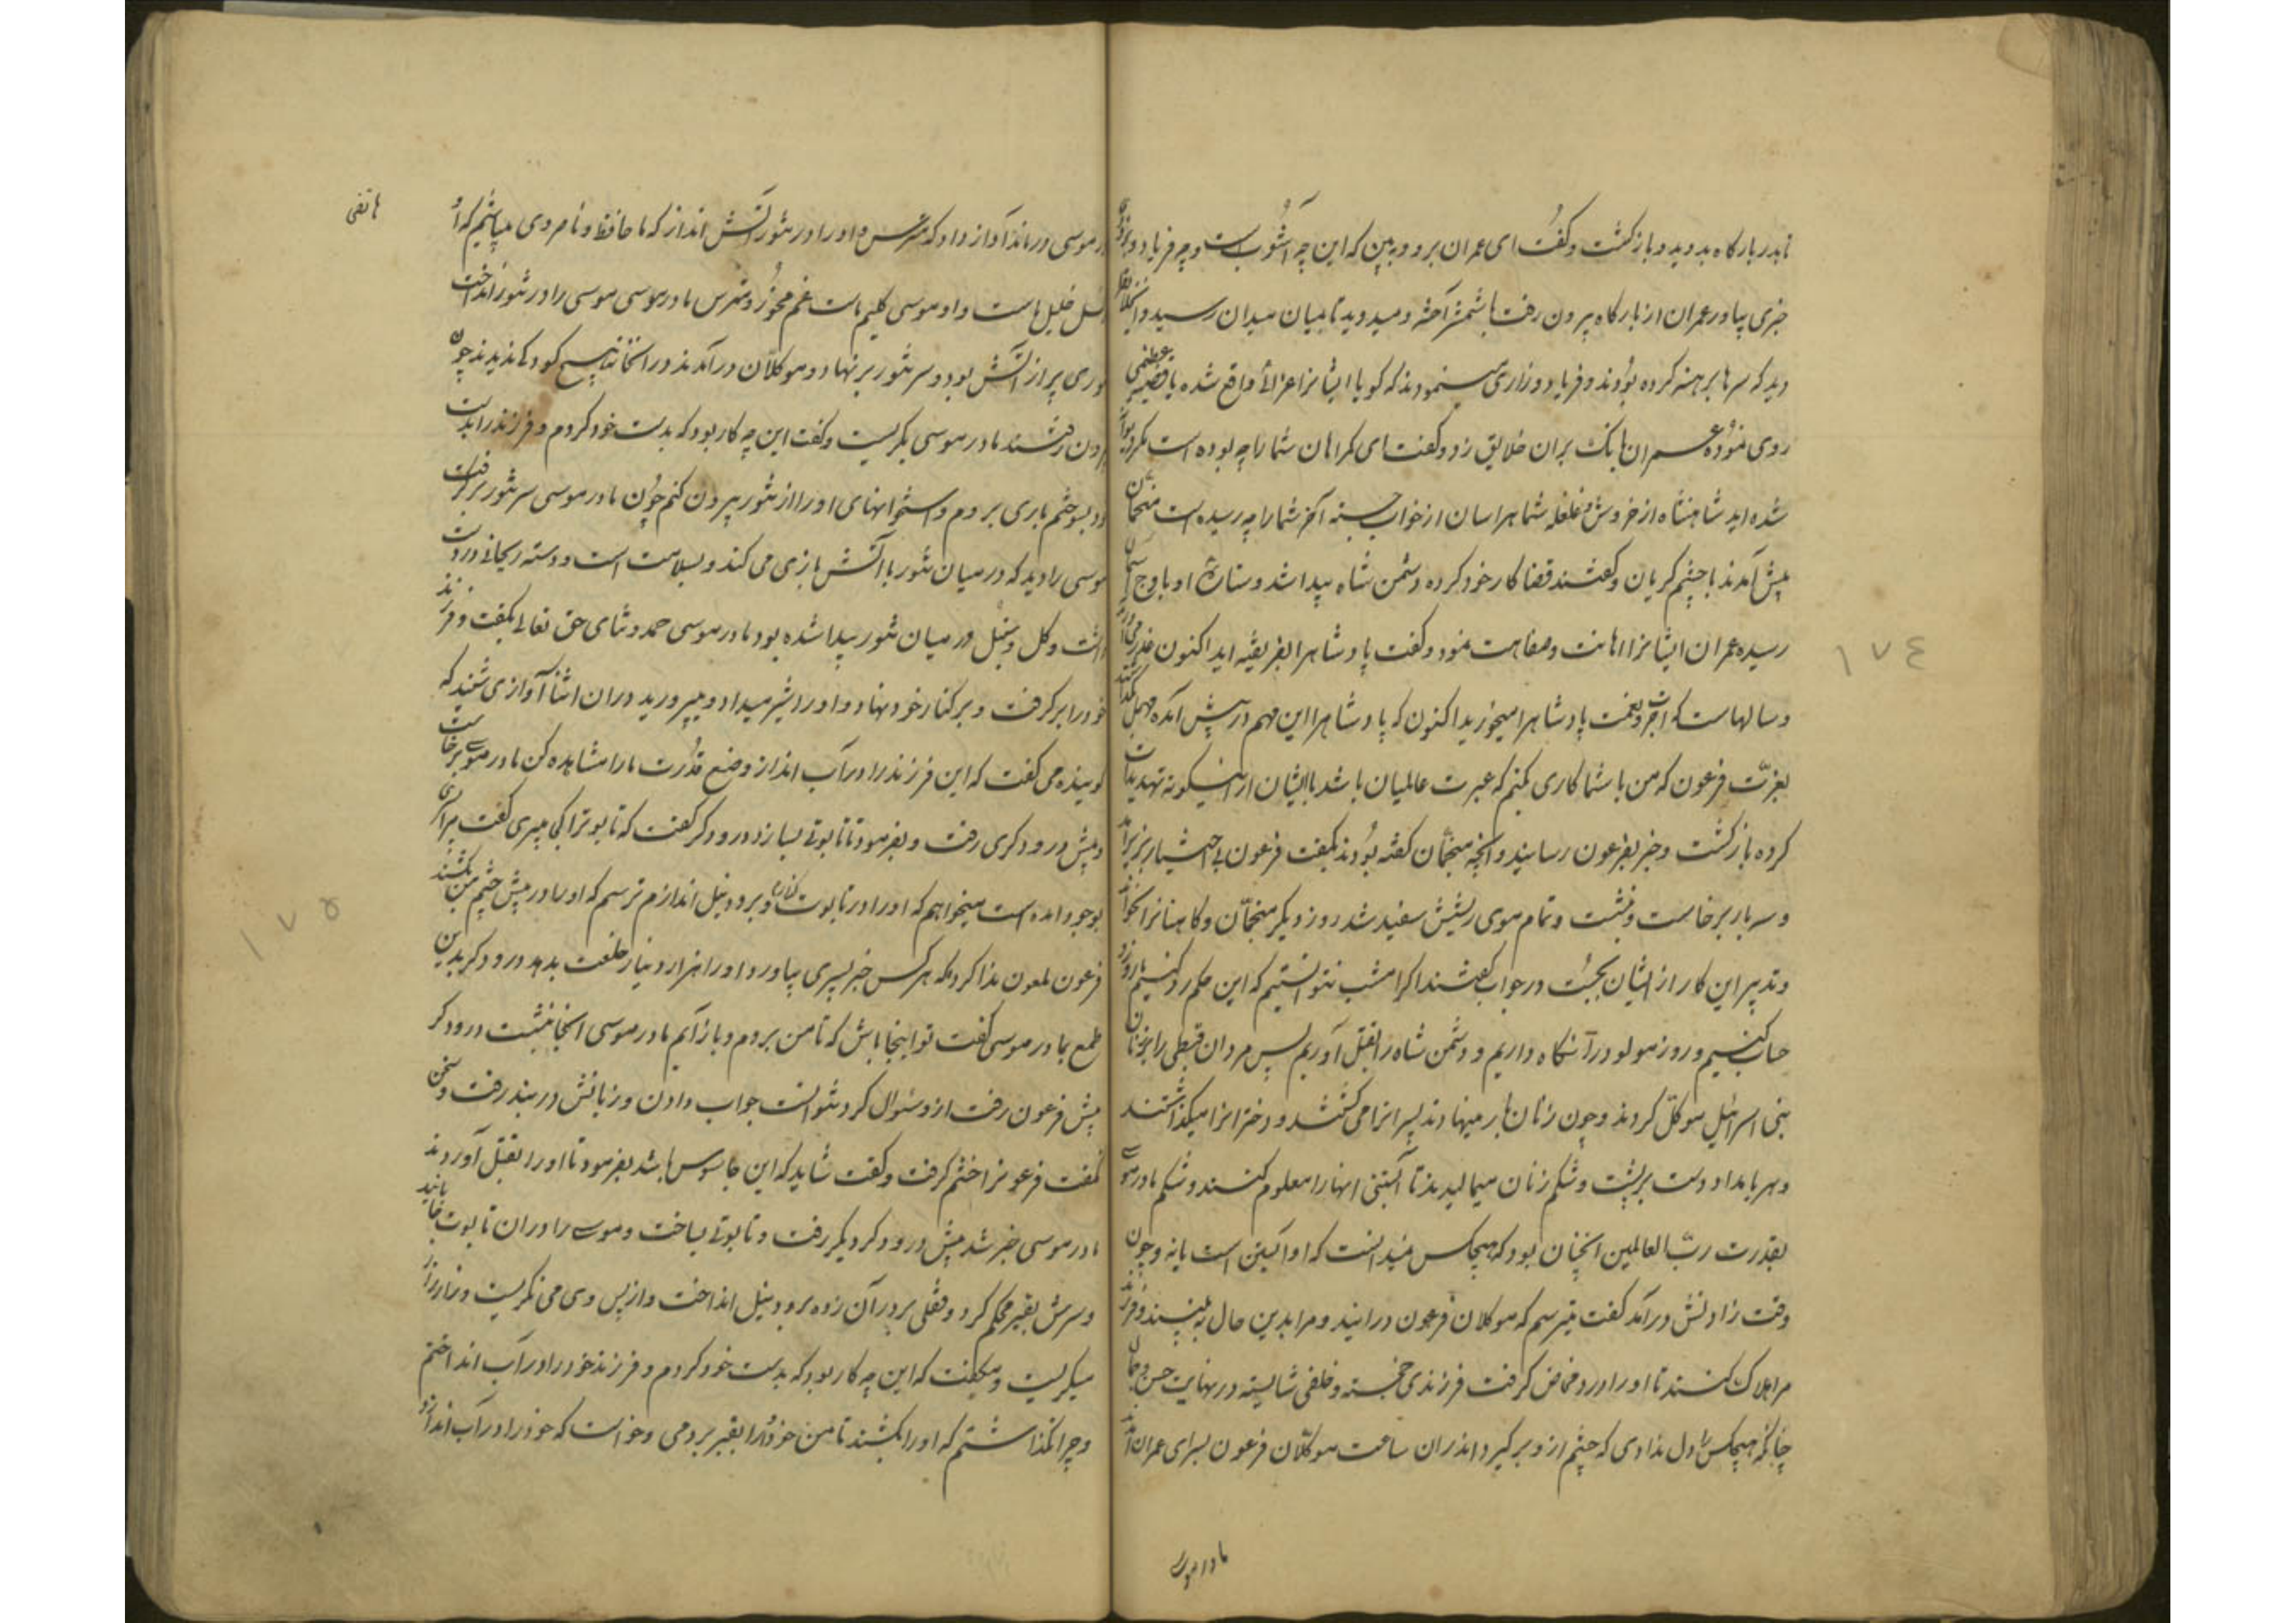 تا بدر بارگاه بدوید و بازگشت و گفت ای عمران برو و ببین که این چه آشوب است و چه فریاد و
خبری بیاور عمران از بارگاه بیرون رفت با شمشیر آخته و میدوید تا بمیان میدان رسید و
دید که سرها برهنه کرده بودند و فریاد و زاری مینمودند که گویا ایشانرا عزائی واقع شده یا قضیه عظیمی
روی نموده عمران بانک بران خلایق زد و گفت ای گمراهان شما را چه بوده است مگر دیوانه
شده اید شاهنشاه از خروش و غلغله شما هراسان از خواب جسته آخر شما را چه رسیده است منجمان
پیش آمدند با چشم گریان و گفتند قضا کار خود کرده دشمن شاه پیدا شد و ستارهٔ او باوج آسمان
رسیده عمران ایشانرا اهانت و سفاهت نمود و گفت پادشاهرا بفریفته اید اکنون
و سالهاست که اجرت و نعمت پادشاهرا میخورید اکنون که پادشاهرا این مهم در پیش آمده مهمل
بعزت فرعون که من با شما کاری کنم که عبرت عالمیان باشد با ایشان ازینگونه تهدیدات
کرده بازگشت و خبر بفرعون رسانید و آنچه منجمان گفته بودند بگفت فرعون بی اختیار
و سه بار برخاست و نشست و تمام موی ریشش سفید شد روز دیگر منجمان و کاهنانرا بخواند
و تدبیر این کار از ایشان بجست در جواب گفتند اگر امشب نتوانستیم که این حکم رد کنیم
حساب کنیم و روز مولود را نگاه داریم و دشمن شاه را بقتل آوریم پس مردان قبطی را بر زنان
بنی اسرائیل موکل کردند و چون زنان بار مینهادند پسرانرا می کشتند و دخترانرا میگذاشتند
و هر بامداد دست بر پشت و شکم زنان میمالیدند تا آبستنی آنها را معلوم کنند و شکم مادر موسی
بقدرت رب العالمین آنچنان بود که هیچکس نمیدانست که او آبستن است یا نه و چون
وقت زادنش درآمد گفت میترسم که موکلان فرعون درآیند و مرا بدین حال به بینند و فرزند
مرا هلاک کنند تا او را درد مخاض گرفت فرزندی خجسته و خلفی شایسته در نهایت حسن و جمال
چنانکه هیچکس را دل ندادی که چشم ازو برگیرد اندران ساعت موکلان فرعون بسرای عمران آمدند
مادر موسی
۱۷٤
هاتفی
در موسی درماند آواز داد که مترس و او را در تنور آتش انداز که ما حافظ و ناصر وی میباشیم که او
نسل خلیل ماست و او موسی کلیم ماست غم مخور و مترس مادر موسی موسی را در تنور انداخت
تنوری پر از آتش بود و سر تنور بر نهاد و موکلان درآمدند در آنخانه هیچ کودک ندیدند چون
بیرون رفتند مادر موسی بگریست و گفت این چه کار بود که بدست خود کردم و فرزند را بدست
خود بسوختم باری بروم و استخوانهای او را از تنور بیرون کنم چون مادر موسی سر تنور برگرفت
موسی را دید که در میان تنور با آتش بازی می کند و بسلامت است و دسته ریحانی در دست
داشت و گل و سنبل در میان تنور پیدا شده بود مادر موسی حمد و ثنای حق تعالی بگفت و فرزند
خود را برگرفت و بر کنار خود نهاد و او را شیر میداد و میپرورید دران اثنا آوازی شنید که
گوینده می گفت که این فرزند را در آب انداز و صنع قدرت ما را مشاهده کن مادر موسی برخاست
و پیش درودگری رفت و بفرمود تا تابوتی بسازد درودگر گفت که تابوت را کجا میبری گفت مرا پسری
بوجود آمده است میخواهم که او را در تابوت کنم و برود نیل اندازم ترسم که او را در پیش چشم من بکشند
فرعون ملعون ندا کرد که هر کس خبر پسری بیاورد او را هزار دینار خلعت بدهد درودگر بدین
طمع بمادر موسی گفت تو اینجا باش که تا من بروم و باز آیم مادر موسی آنجا بنشست درودگر
پیش فرعون رفت ازو سئوال کرد نتوانست جواب دادن و زبانش در بند رفت و سخن
نگفت فرعونرا خشم گرفت و گفت شاید که این جاسوس باشد بفرمود تا او را بقتل آوردند
مادر موسی خبر شد پیش درودگر دیگر رفت و تابوتی بساخت و موسی را دران تابوت بخوابانید
و سرش بقیر محکم کرد و قفلی بر در آن زده برود نیل انداخت و از پس وی می نگریست و زار زار
میگریست و میگفت که این چه کار بود که بدست خود کردم و فرزند خود را در آب انداختم
و چرا نگذاشتم که او را بکشند تا من خود او را بقبر بردمی و خواست که خود را در آب اندازد
۱۷۵